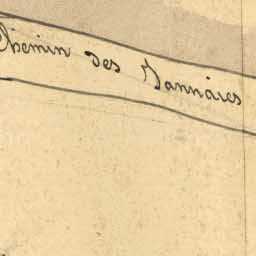 Chemin des Vannaies